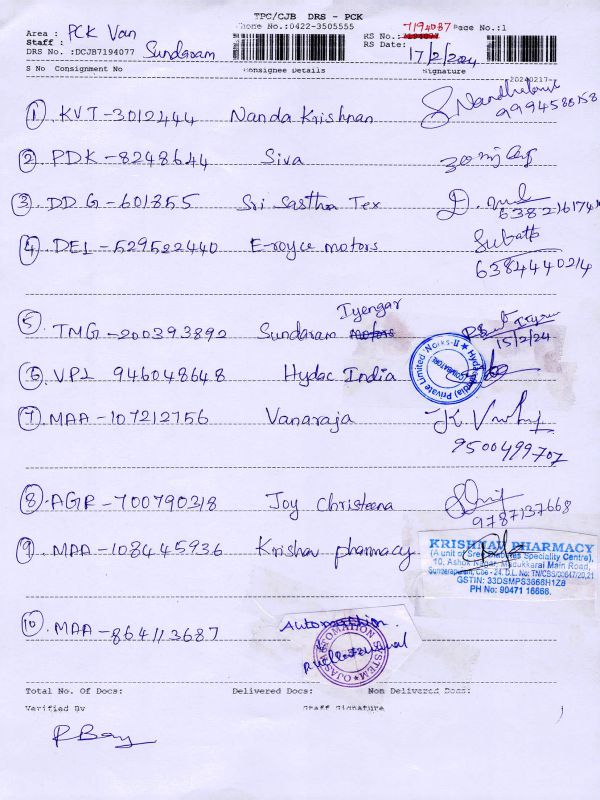 TPC/CJB DRS - PCK
Phone No.:0422-3505555
7194087 Page No.:1
Area : PCK Van
RS No.:
Staff :
RS Date: 17/2/2024
DRS No. :DCJB7194077 Sundaram
S No Consignment No Consignee Details Signature
20240217
① KVT-3012444 Nanda Krishnan
9994586158
② PDK-8248644 Siva
③ DDG-601855 Sri Sastha Tex D.
638216174
④ DEL-529522440 E-royce motors
6384440214
Iyengar
⑤ TMG-200393892 Sundaram motors
15/2/24
⑥ VPL 946048648 Hydac India
Hydac (India) Private Limited Works-II
COIMBATORE
⑦ MAA-107212756 Vanaraja K.
9500499707
⑧ AGR-700790318 Joy Christeena
9787137668
⑨ MAA-108445936 Krishav pharmacy
KRISHNAV PHARMACY
(A unit of Sree Diabetes Speciality Centre),
10, Ashok Nagar, Madukkarai Main Road,
Sunderapuram, Cbe - 24. D.L. No: TN/CBS/00647/20,21
GSTIN: 33DSMPS3666H1Z8
PH No: 90471 16666.
⑩ MAA-864113687 Automation
OJAS AUTOMATION SYSTEM
Total No. Of Docs: Delivered Docs: Non Delivered Docs:
Verified By Staff Signature